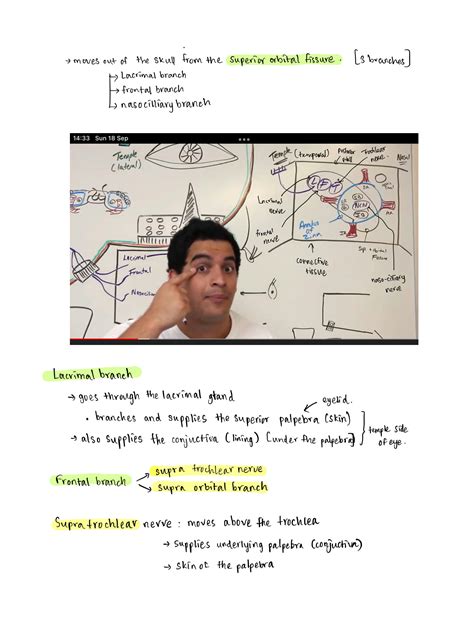 → moves out of the skull from the superior orbital fissure. [3 branches]
↳ Lacrimal branch
↳ frontal branch
↳ nasocilliary branch
14:33 Sun 18 Sep
Temple
(lateral)
Temple (temporal)
Trochlear
nerve
Nasal
L F T
Lacrimal
nerve
frontal
nerve
Annulus of
Zinn
connective
tissue
Sup orbital
Fissure
naso-ciliary
nerve
Lacrimal
Frontal
Lacrimal branch
→ goes through the lacrimal gland
eyelid.
• branches and supplies the superior palpebra (skin)
→ also supplies the conjuctiva (lining) [under the palpebra]
temple side
of eye.
Frontal branch
supra trochlear nerve
supra orbital branch
Supratrochlear nerve : moves above the trochlea
→ supplies underlying palpebra (conjuctiva)
→ skin of the palpebra